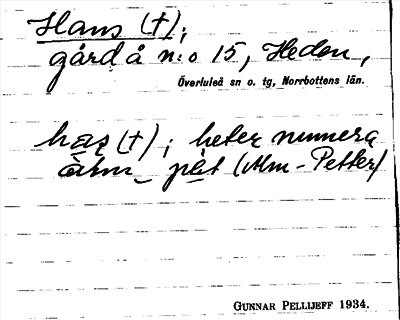 Hans (†);
gård å n:o 15, Heden,
Överluleå sn o. tg, Norrbottens län.
has (†); heter numera
alm_ pet (Alm-Petter)
GUNNAR PELLIJEFF 1934.